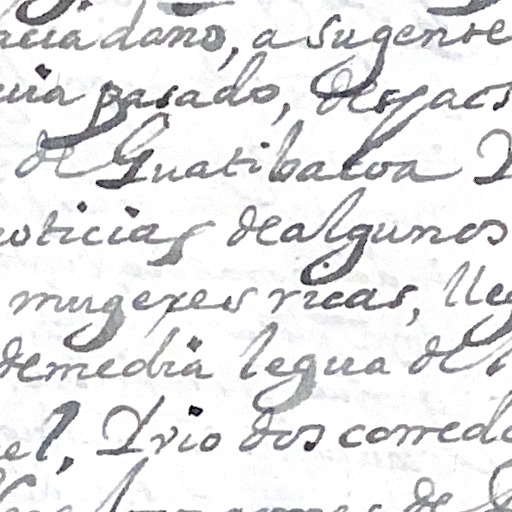 acia dano, a su gente
uia pasado, despacs
de Guatibacoa Y
noticias de algunos
mugeres ricas, lleg
de media legua del
el, Y vio dos corredo